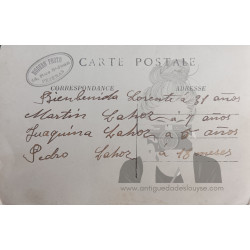 CARTE POSTALE
CORRESPONDANCE ADRESSE
Bienbenida Lorente à 31 años
Martin Lahoz à 7 años
Juaquina Lahoz à años
Pedro Lahoz à 18 meses
www.antiguedadeslouyse.com